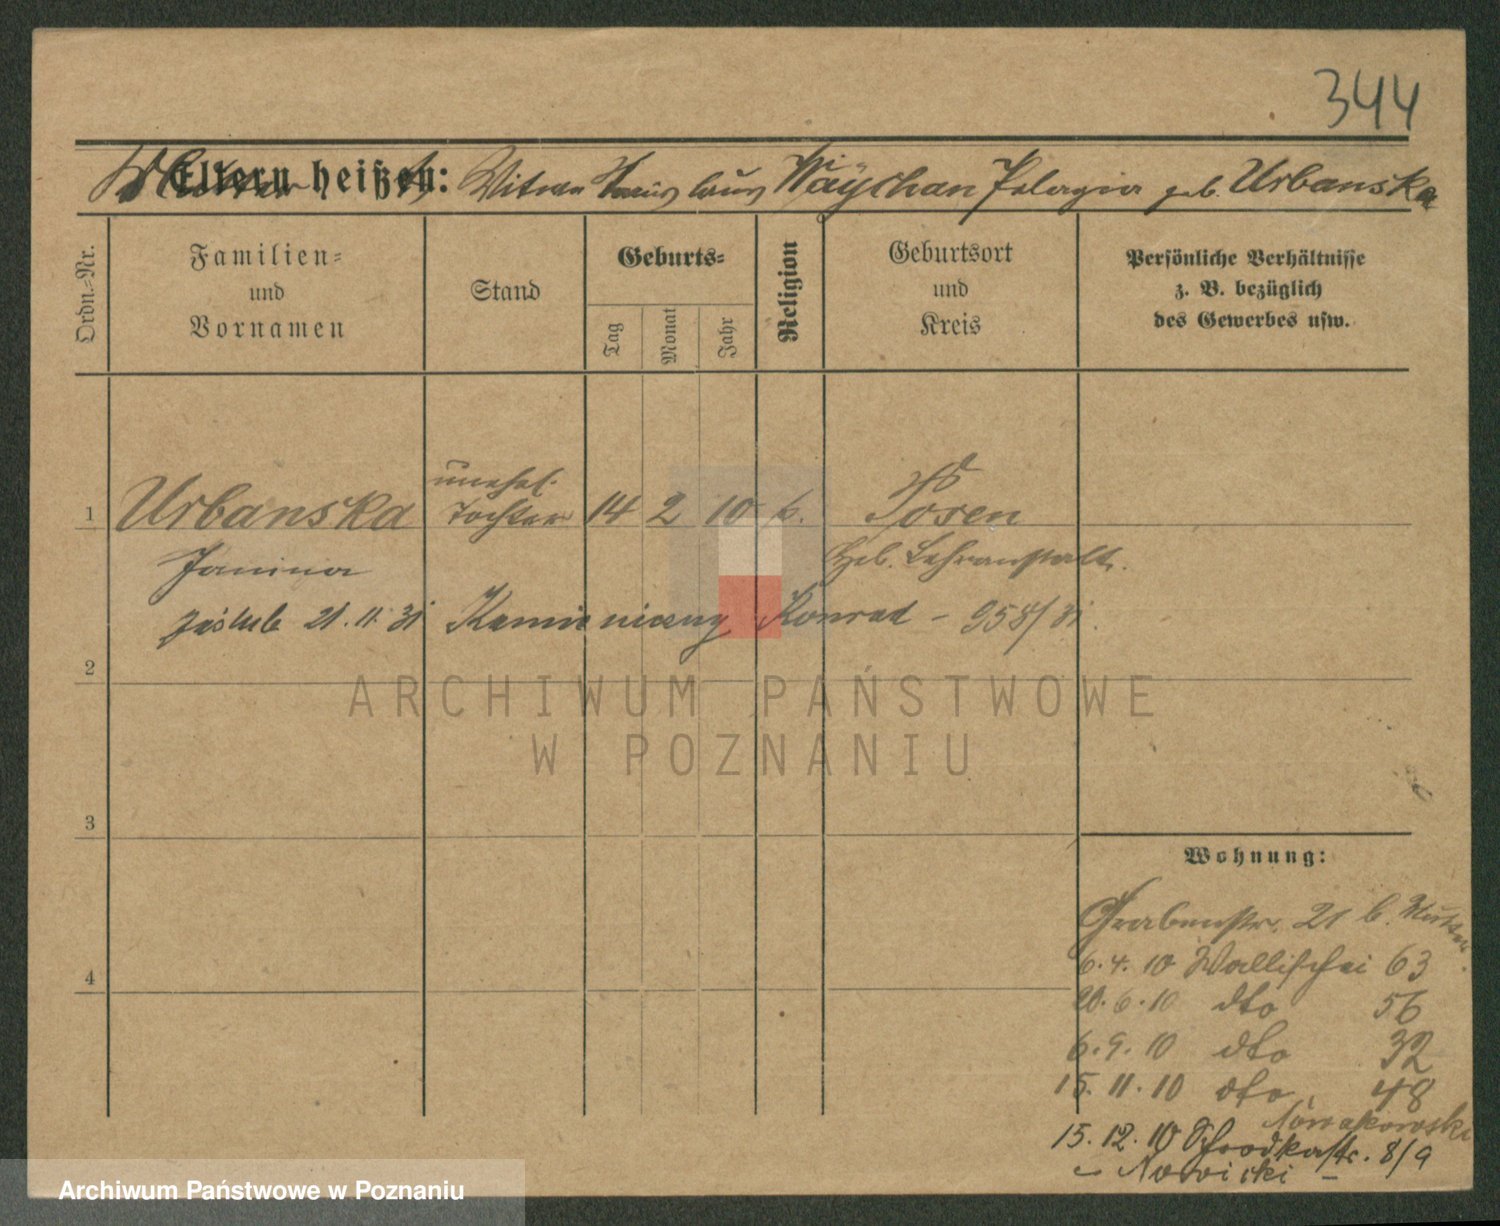 344
Eltern heißen: Pelagia geb. Urbanska
Ordn.-Nr.
Familien-
und
Vornamen
Stand
Geburts-
Tag
Monat
Jahr
Religion
Geburtsort
und
Kreis
Persönliche Verhältnisse
z. B. bezüglich
des Gewerbes usw.
unehel.
1 Urbanska Tochter 14 2 10 k. Posen
Janina Heb. Lehranstalt.
21.11.31 Konrad - 958/31.
2
3
4
Wohnung:
Grabenstr. 21 b. Mutter.
6.4.10 Wallischei 63
20.6.10 dto 56
6.9.10 dto 32
15.11.10 dto 48
Nowakowski
15.12.10 Schrodkastr. 8/9
Nowicki
ARCHIWUM PAŃSTWOWE
W POZNANIU
Archiwum Państwowe w Poznaniu